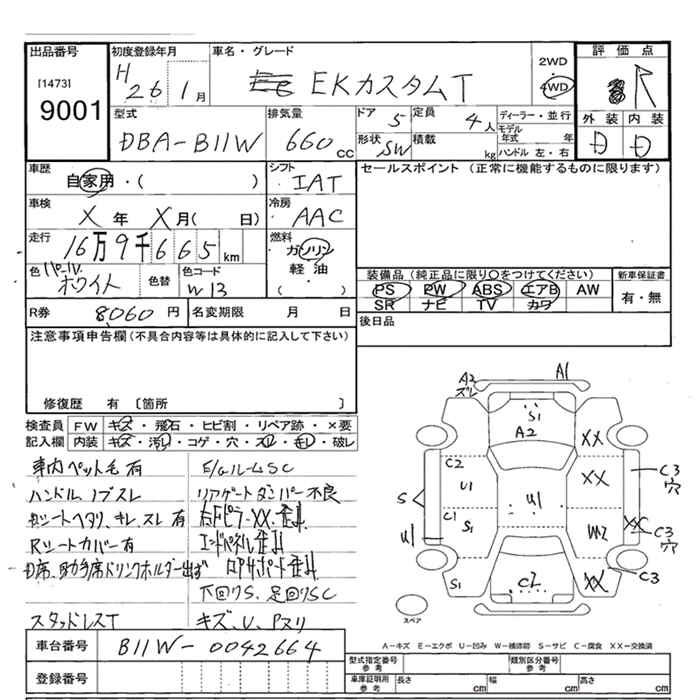 出品番号 初度登録年月 車名・グレード 評価点
[1473] 9001
H 26 1月 EKカスタムT 2WD 4WD R
型式 排気量 ドア 5 定員 4人 ディーラー・並行 外装 内装
DBA-B11W 660CC 形状 SW 積載 kg モデル年式 年 ハンドル 左・右 D D
車歴 シフト セールスポイント(正常に機能するものに限ります)
自家用・( ) IAT
車検 冷房
X年 X月( 日) AAC
走行 燃料
16万9千665km ガソリン
軽油
( )
色 パール ホワイト 色替 色コード W13
装備品(純正品に限り○をつけてください) 新車保証書
PS PW ABS エアB AW 有・無
SR ナビ TV カワ
R券 8060円 名変期限 月 日 後日品
注意事項申告欄(不具合内容等は具体的に記入して下さい)
修復歴 有〔箇所 〕
検査員 FW キズ・飛石・ヒビ割・リペア跡・×要
記入欄 内装 キズ・汚れ・コゲ・穴・スレ・毛・破レ
車内ペット毛有 E/gルームSC
ハンドル、ノブスレ リアゲートダンパー不良
Dシートヘタリ、キレ、スレ有
Rシートカバー有 エンドパネル歪み
D席、助手席ドリンクホルダー出ず
下回りS、足回りSC
スタッドレスT キズ、U、Pスリ
A2 スレ A1
S1
A2
XX
C2
U1
XX
C3 穴
S
U1
C1
S1
W2
XX
C3 穴
U1
S1
C2
XX
C3
スペア
A-キズ E-エクボ U-凹み W-補修跡 S-サビ C-腐食 XX-交換済
車台番号 B11W-0042664
登録番号
型式指定番号 参考 類別区分番号 参考
車庫証明用 参考 長さ cm 幅 cm 高さ cm